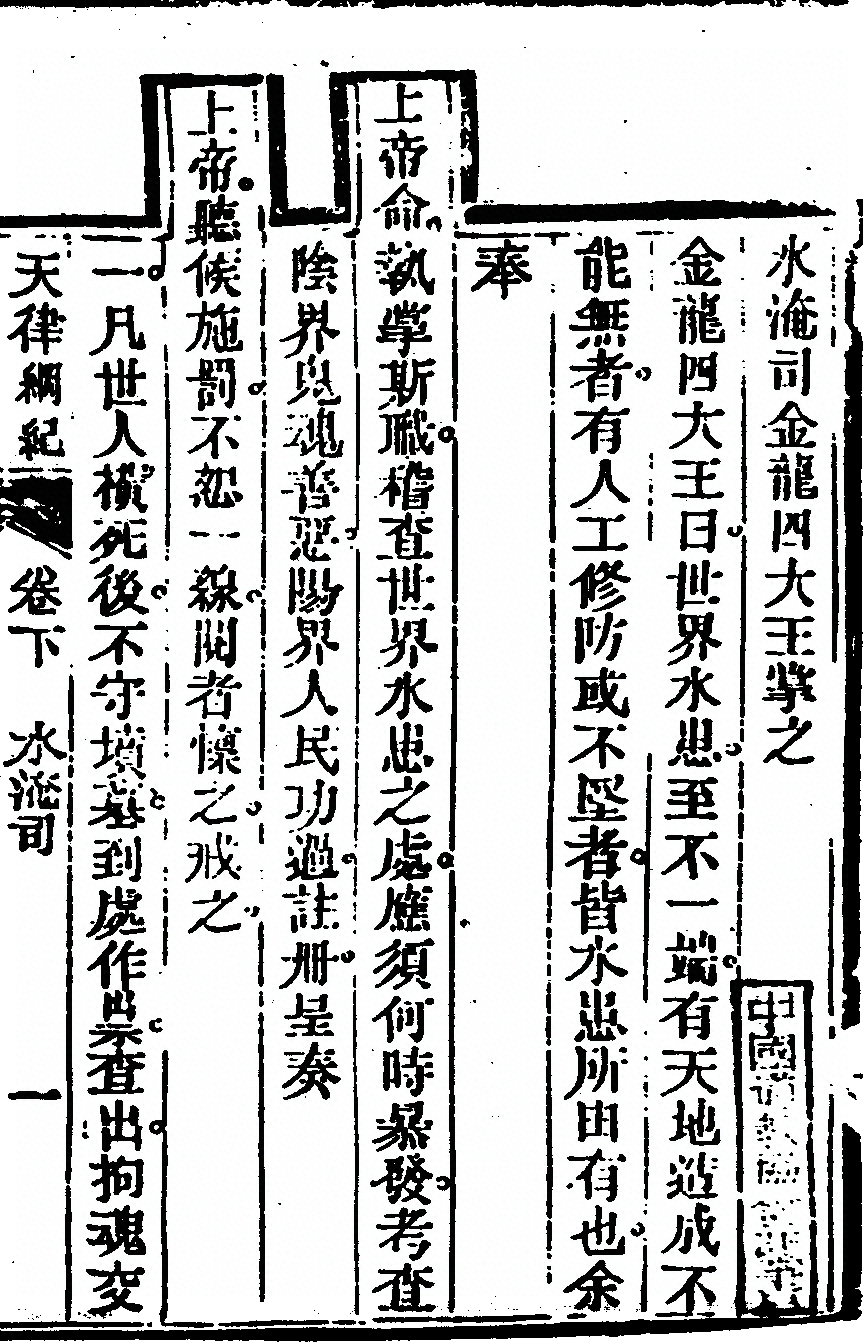 水淹司金龍四大王掌之
金龍四大王曰世界水患至不一端有天地造成不
能無者有人工修防或不堅者皆水患所由有也余
奉
上帝命執掌斯職稽查世界水患之處應須何時暴發考查
陰界鬼魂善惡陽界人民功過註冊呈奏
上帝聽候施罰不恕一線閱者懍之戒之
一凡世人橫死後不守墳墓到處作祟查出拘魂交
天律綱紀 卷下 水淹司 一